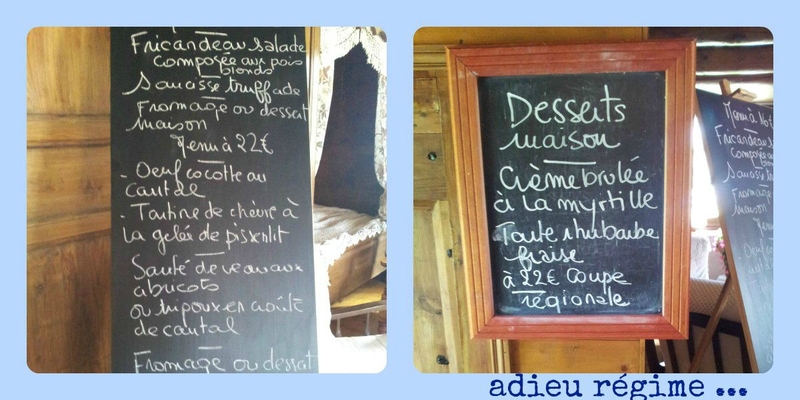 Fricandeau salade
composée aux pois
blonds
Saucisse truffade
Fromage ou dessert
maison
Menu à 22€
- Oeuf cocotte au
cantal
- Tartine de chèvre à
la gelée de pissenlit
Sauté de veau aux
abricots
ou tripoux en croûte
de cantal
Fromage ou dessert
Desserts
maison
Crème brulée
à la myrtille
Tarte rhubarbe
fraise
à 22€ Coupe
régionale
Menu à 16€
Fricandeau
composée
Saucisse
Fromage
maison
adieu régime ...